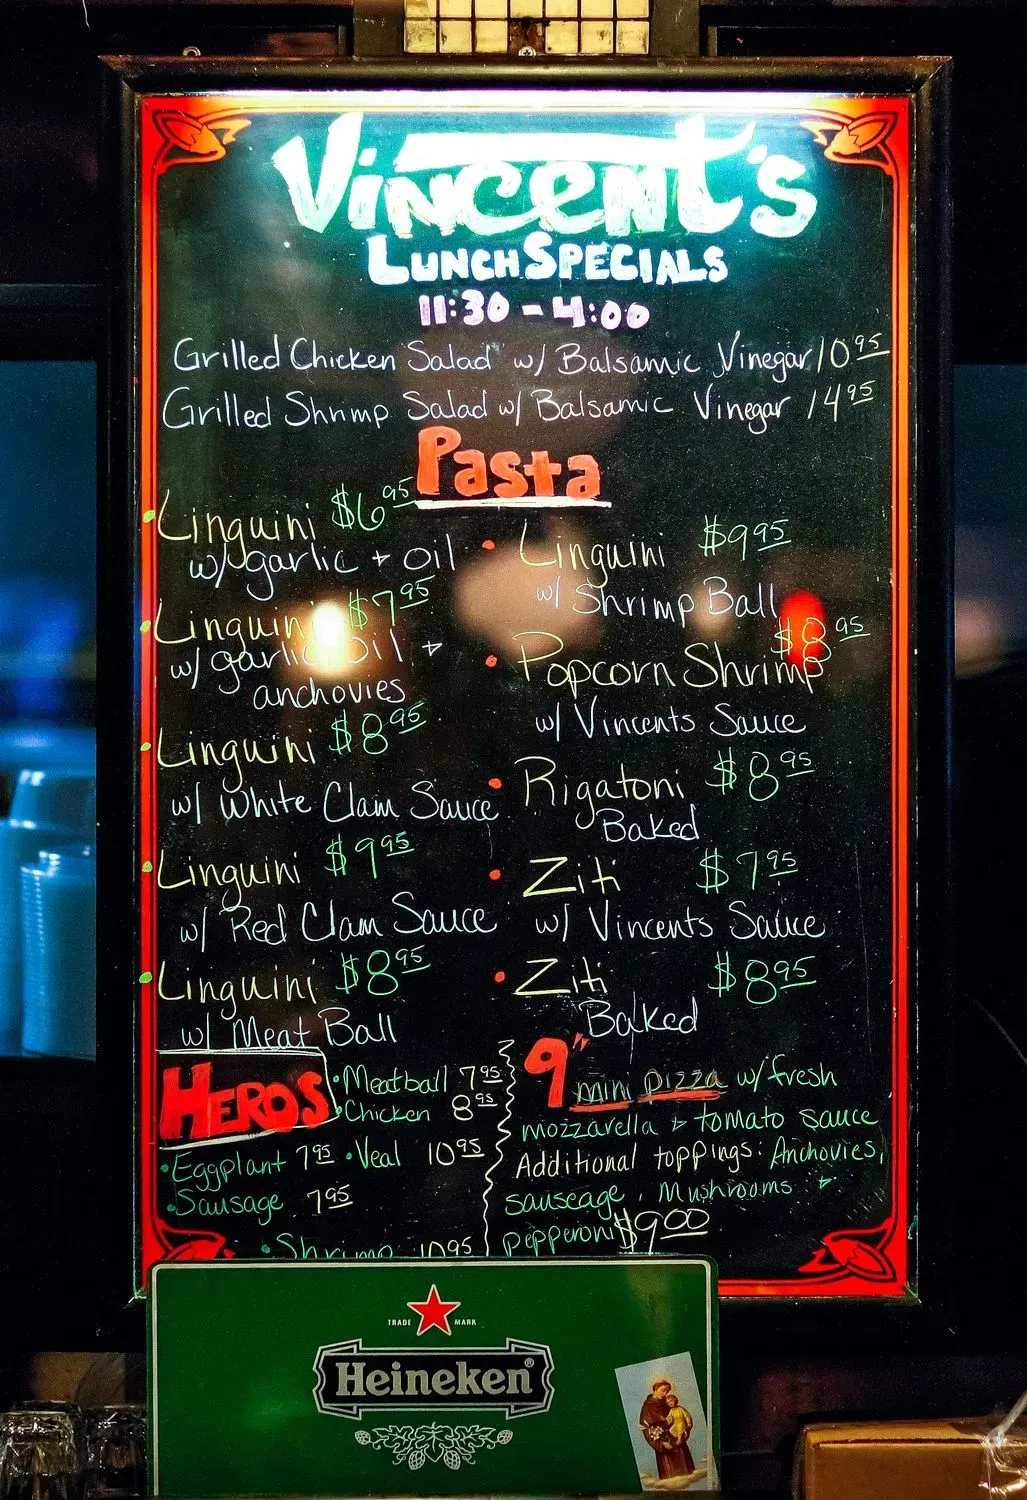 Vincent's
Lunch Specials
11:30 - 4:00
Grilled Chicken Salad w/ Balsamic Vinegar 10 95
Grilled Shrimp Salad w/ Balsamic Vinegar 14 95
Pasta
Linguini $6 95
w/ garlic + oil
Linguini $7 95
w/ garlic, oil +
anchovies
Linguini $8 95
w/ White Clam Sauce
Linguini $9 95
w/ Red Clam Sauce
Linguini $8 95
w/ Meat Ball
Linguini $9 95
w/ Shrimp Ball
$8 95
Popcorn Shrimp
w/ Vincents Sauce
Rigatoni $8 95
Baked
Ziti $7 95
w/ Vincents Sauce
Ziti $8 95
Baked
HEROS
• Meatball 7 95
• Chicken 8 95
• Eggplant 7 95 • Veal 10 95
• Sausage 7 95
• Shrimp 10 95
9" mini pizza w/ fresh
mozzarella + tomato sauce
Additional toppings: Anchovies,
sauseage, Mushrooms +
pepperoni $9 00
TRADE MARK
Heineken®